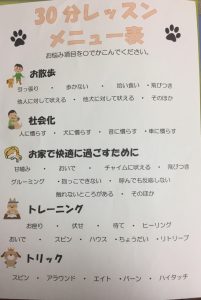 30分レッスン
メニュー表
お悩み項目を○でかこんでください。
お散歩
引っ張り ・ 歩かない ・ 拾い食い ・ 飛びつき
他人に対して吠える ・ 他犬に対して吠える ・ そのほか
社会化
人に慣らす ・ 犬に慣らす ・ 音に慣らす ・ 車に慣らす
お家で快適に過ごすために
甘噛み ・ おいで ・ チャイムに吠える ・ 飛びつき
グルーミング ・ 抱っこできない ・ 呼んでも反応しない
触れないところがある ・ そのほか
トレーニング
お座り ・ 伏せ ・ 待て ・ ヒーリング
おいで ・ スピン ・ ハウス ・ ちょうだい ・ リトリーブ
トリック
スピン ・ アラウンド ・ エイト ・ バーン ・ ハイタッチ